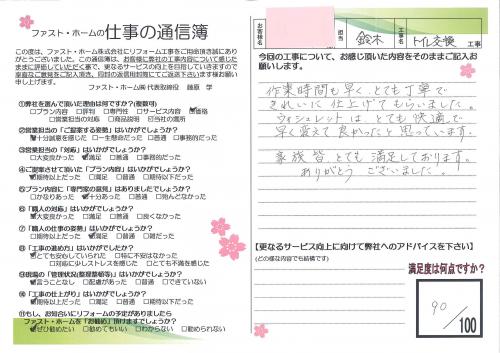 ファスト・ホームの仕事の通信簿
この度は、ファスト・ホーム株式会社にリフォーム工事をご用命頂き誠にあり
がとうございました。この通信簿は、お客様に弊社の工事内容について感じた
ままに評価していただく事で、更なるサービスの向上を目指していきますので
率直なご意見をご記入頂き、同封の返信用封筒にてご返送下さいます様お願い
申し上げます。
ファスト・ホーム㈱ 代表取締役 藤原 学
①弊社を選んで頂いた理由は何ですか？(複数可)
□プラン内容 □評判 □専門性 □サービス内容 ☑価格
□営業担当の対応 □商品説明 □当社の雰囲
②営業担当の「ご提案する姿勢」はいかがでしょうか？
☑十分誠意を感じた □一生懸命だった □普通 □事務的だった
③営業担当の「対応」はいかがでしょうか？
□大変良かった ☑満足 □普通 □事務的だった
④ご提案させて頂いた「プラン内容」はいかがでしたか？
☑期待以上だった □満足 □普通 □期待以下だった
⑤プラン内容に「専門家の意見」はありましたでしょうか？
□かなりあった ☑十分あった □普通 □殆んどなかった
⑥「職人の対応」はいかがでしょうか？
☑大変良かった □満足 □普通 □良くなかった
⑦「職人の仕事の姿勢」はいかがでしょうか？
☑期待以上だった □満足 □普通 □雑だった
⑧「工事の進め方」はいかがでしたか？
☑とても安心していられた □特に不安はなかった
□対応に少しストレスを感じた □とても不満を感じた
⑨現場の「管理状況(整理整頓等)」はいかがでしょうか？
☑言うことなし □配慮があった □普通 □できていない
⑩「工事の仕上がり」はいかがでしょうか？
☑期待以上だった □満足 □普通 □期待以下だった
⑪もし、お知合いにリフォームの予定がありましたら
ファスト・ホームを「お勧め」頂けますでしょうか？
☑ぜひ勧めたい □勧めてもいい □わからない □勧められない
お客様名
担当 鈴木
工事名 トイレ交換 工事
今回の工事について、お感じ頂いた内容をそのままご記入お
願いします。
作業時間も早く、とても丁寧で
きれいに仕上げてもらいました。
ウォシュレットは とても快適で
早く変えて良かったと思っています。
家族皆、とても満足しております。
ありがとうございました。
【更なるサービス向上に向けて弊社へのアドバイスを下さい】
(どの様な内容でも結構です)
満足度は何点ですか？
90
/100